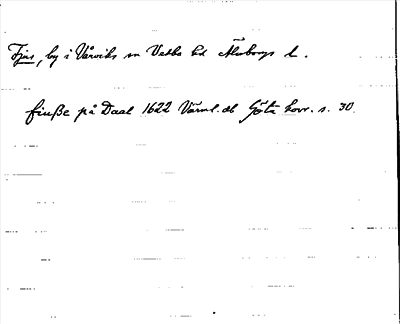 Fjus, by i Vårviks sn Vedbo hd Älvborgs l.
finße på Daal 1622 Värml. db Göta hovr. s. 30